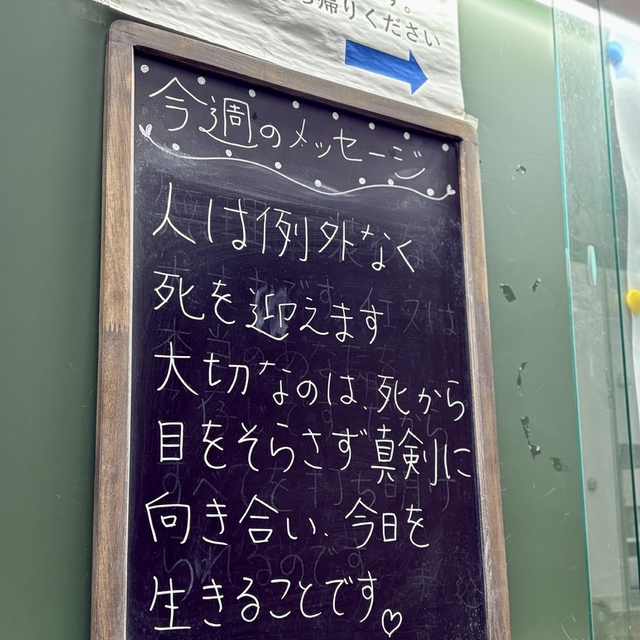 帰りください
今週のメッセージ
人は例外なく
死を迎えます
大切なのは、死から
目をそらさず真剣に
向き合い、今日を
生きることです。♡